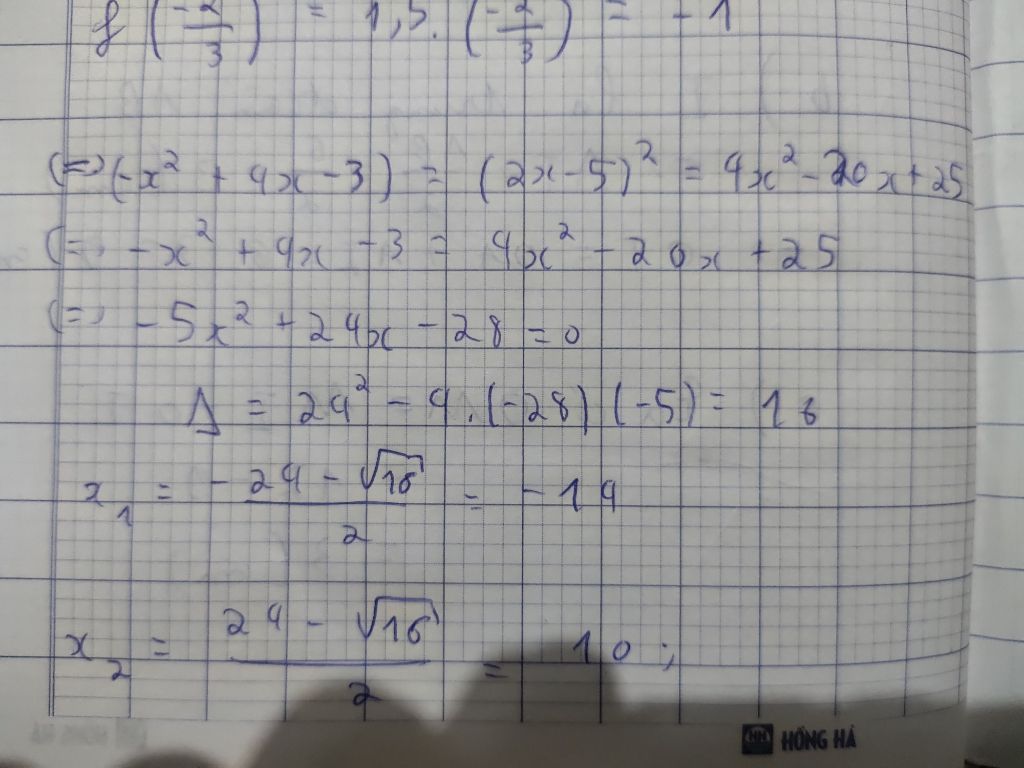 f (-2/3) = 1,5. (-2/3) = -1
(=) (-x² + 4x - 3) = (2x - 5)² = 4x² - 20x + 25
(=) -x² + 4x - 3 = 4x² - 20x + 25
(=) -5x² + 24x - 28 = 0
Δ = 24² - 4.(-28)(-5) = 16
x₁ = (-24 - √16)/2 = -14
x₂ = (24 - √16)/2 = 10;
HN HỒNG HÀ